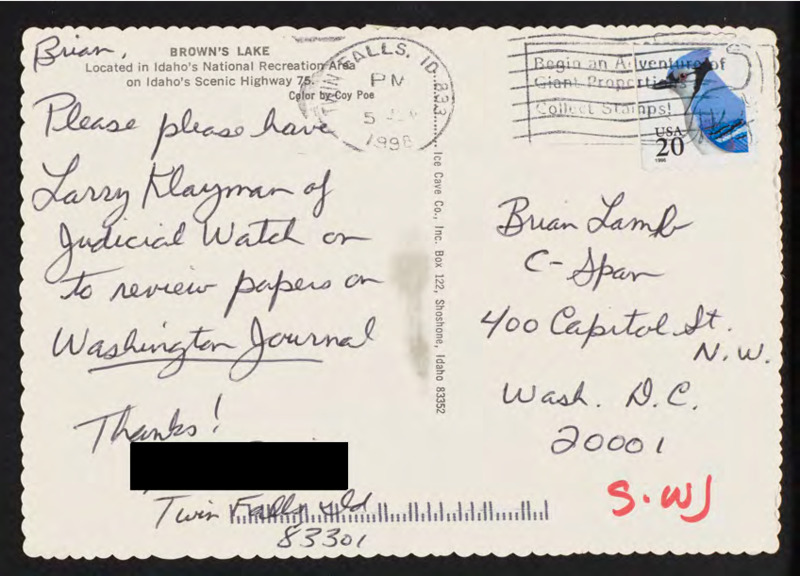 Brian,
BROWN'S LAKE
Located in Idaho's National Recreation Area
on Idaho's Scenic Highway 75.
Color by Coy Poe
Please please have
Larry Klayman of
Judicial Watch on
to review papers on
Washington Journal
Thanks!
Twin Falls, Id
83301
Ice Cave Co., Inc. Box 122, Shoshone, Idaho 83352
TWIN FALLS, ID 833
PM
5
1998
Begin an Adventure of
Giant Proportions
Collect Stamps!
USA
20
1996
Brian Lamb
C-Span
400 Capitol St.
N.W.
Wash. D.C.
20001
S.WJ